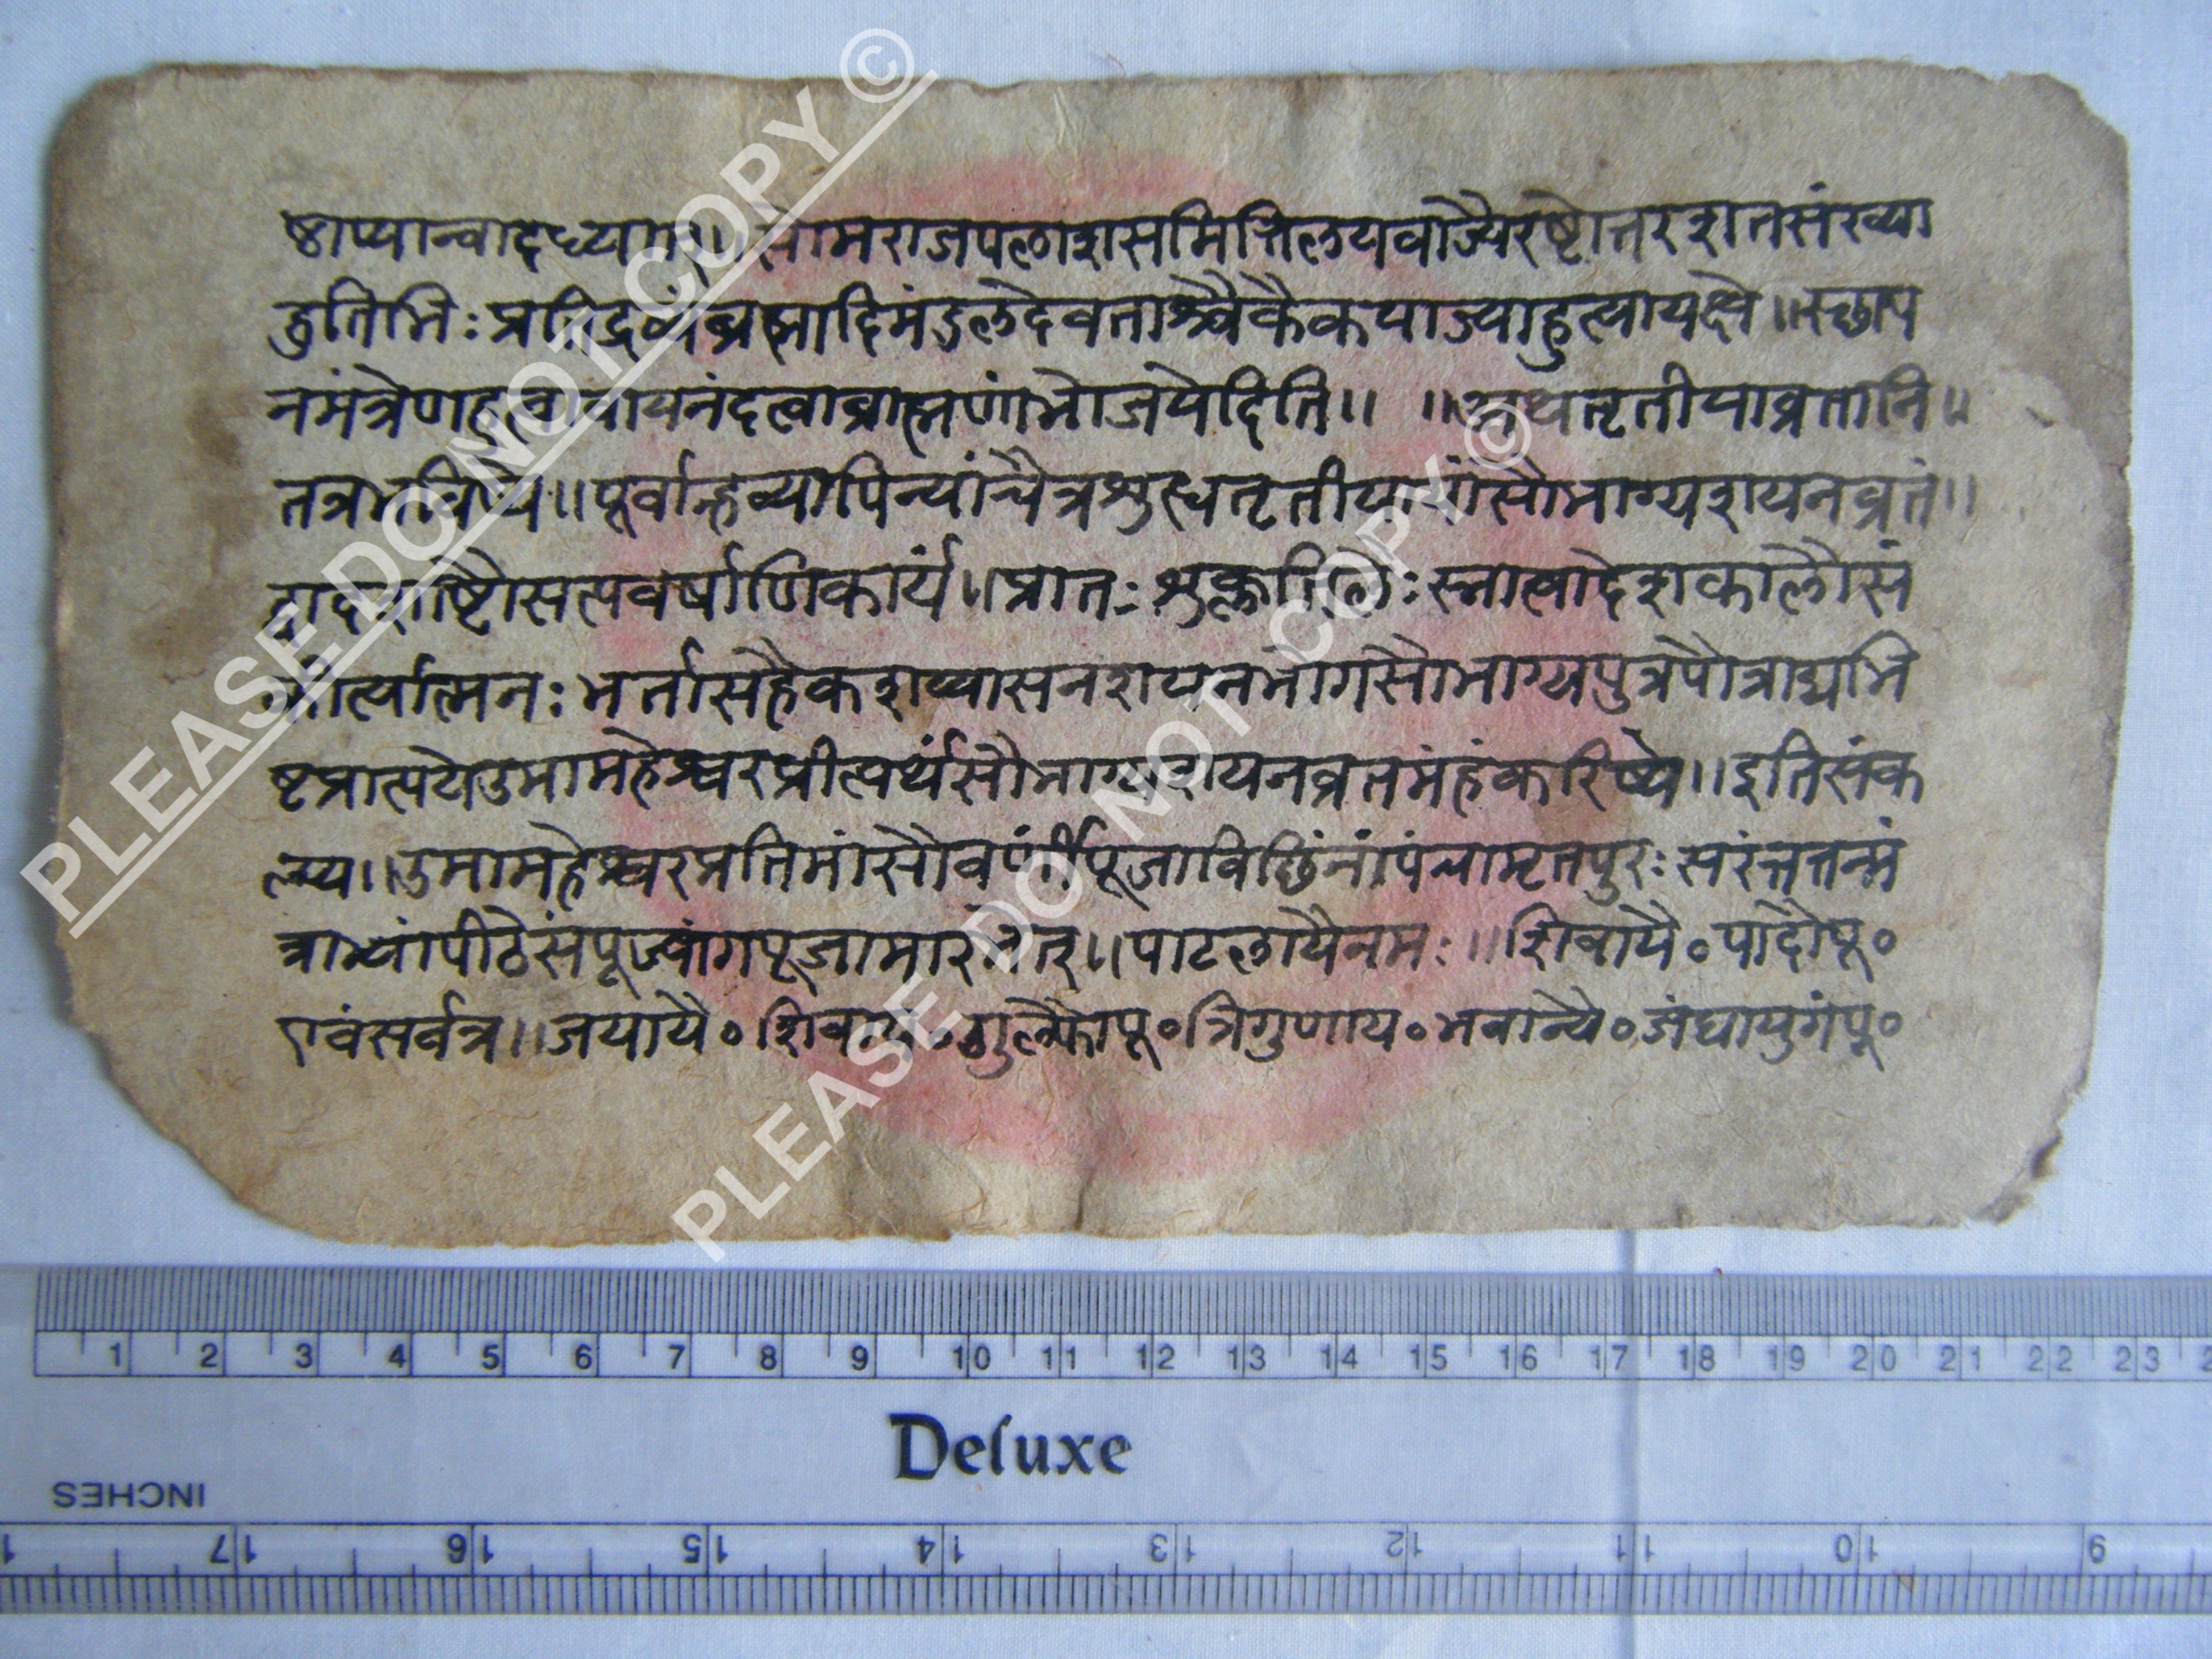 ष्ठाप्यान्वादध्यात्॥ सोमराजपलाशसमित्तिलयवाज्यैरष्टोत्तरशतसंख्या
हुतिभिः प्रतिद्रव्यं ब्रह्मादिमंडलदेवताश्चैकैकयाज्याहुत्यायक्ष्ये॥ स्छाप
नमंत्रेणहुत्वा वायनंदत्वाब्राह्मणांभोजयेदिति॥ ॥अथतृतीयाव्रतानि॥
तत्रभविष्ये॥ पूर्वाह्नव्यापिन्यांचैत्रशुक्लतृतीयायांसौभाग्यशयनव्रतं॥
द्वादशाष्टौसप्तवर्षाणिकार्यं॥ प्रातःशुक्लतिलैः स्नात्वादेशकालौसं
कीर्त्यात्मनः भर्तासहैकशय्यासनशयनभोगसौभाग्यपुत्रपौत्राद्यभि
ष्टप्राप्तयेउमामहेश्वरप्रीत्यर्थंसौभाग्यशयनव्रतमंहंकरिष्ये॥ इतिसंक
ल्प्य॥ उमामहेश्वरप्रतिमांसौवर्णीं पूजाविछिंनांपंचामृतपुरःसरंतत्तन्मं
त्राभ्यांपीठेसंपूज्यांगपूजामारभेत्॥ पाटलायैनमः॥ शिवायै॰ पादौपू॰
एवंसर्वत्र॥ जयायै॰ शिवाय॰ गुल्फौपू॰ त्रिगुणाय॰ भवान्यै॰ जंघायुगंपू॰
PLEASE DO NOT COPY ©
PLEASE DO NOT COPY ©
1 2 3 4 5 6 7 8 9 10 11 12 13 14 15 16 17 18 19 20 21 22 23
Deluxe
INCHES
17 16 15 14 13 12 11 10 9